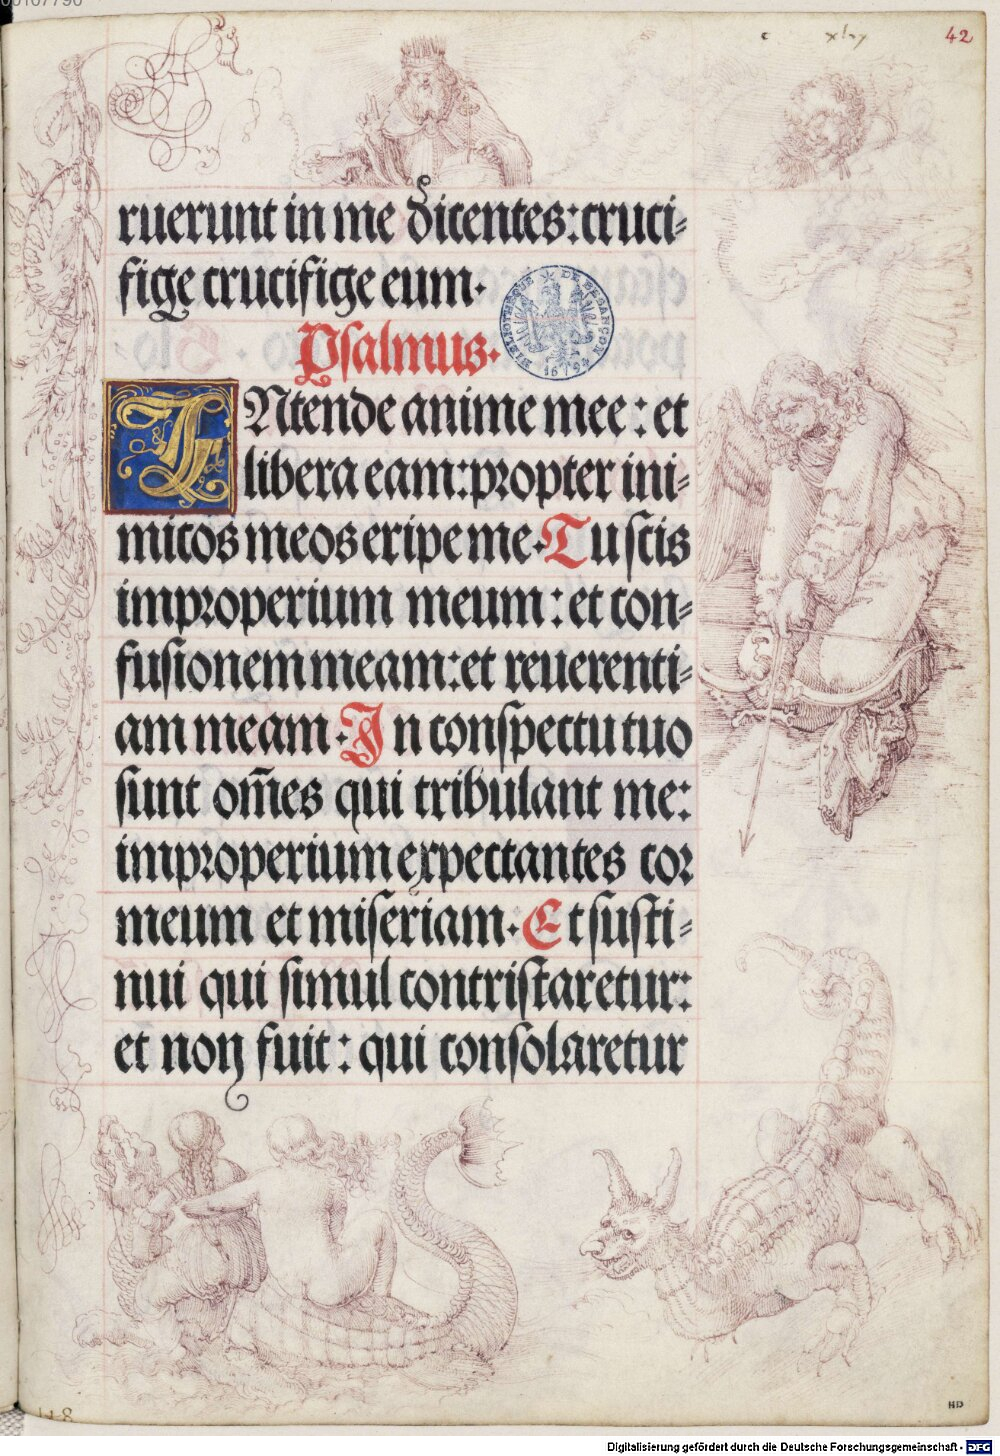 00107790
c xlvy
42
ruerunt in me dicentes: cruci-
fige crucifige eum.
Psalmus.
BIBLIOTHEQUE DE BESANCON
1679
INtende anime mee: et
libera eam: propter ini-
micos meos eripe me. Tu scis
improperium meum: et con-
fusionem meam: et reuerenti-
am meam. In conspectu tuo
sunt om̄es qui tribulant me:
improperium expectantes cor
meum et miseriam. Et susti-
nui qui simul contristaretur:
et non fuit: qui consolaretur
HD
Digitalisierung gefördert durch die Deutsche Forschungsgemeinschaft - DFG